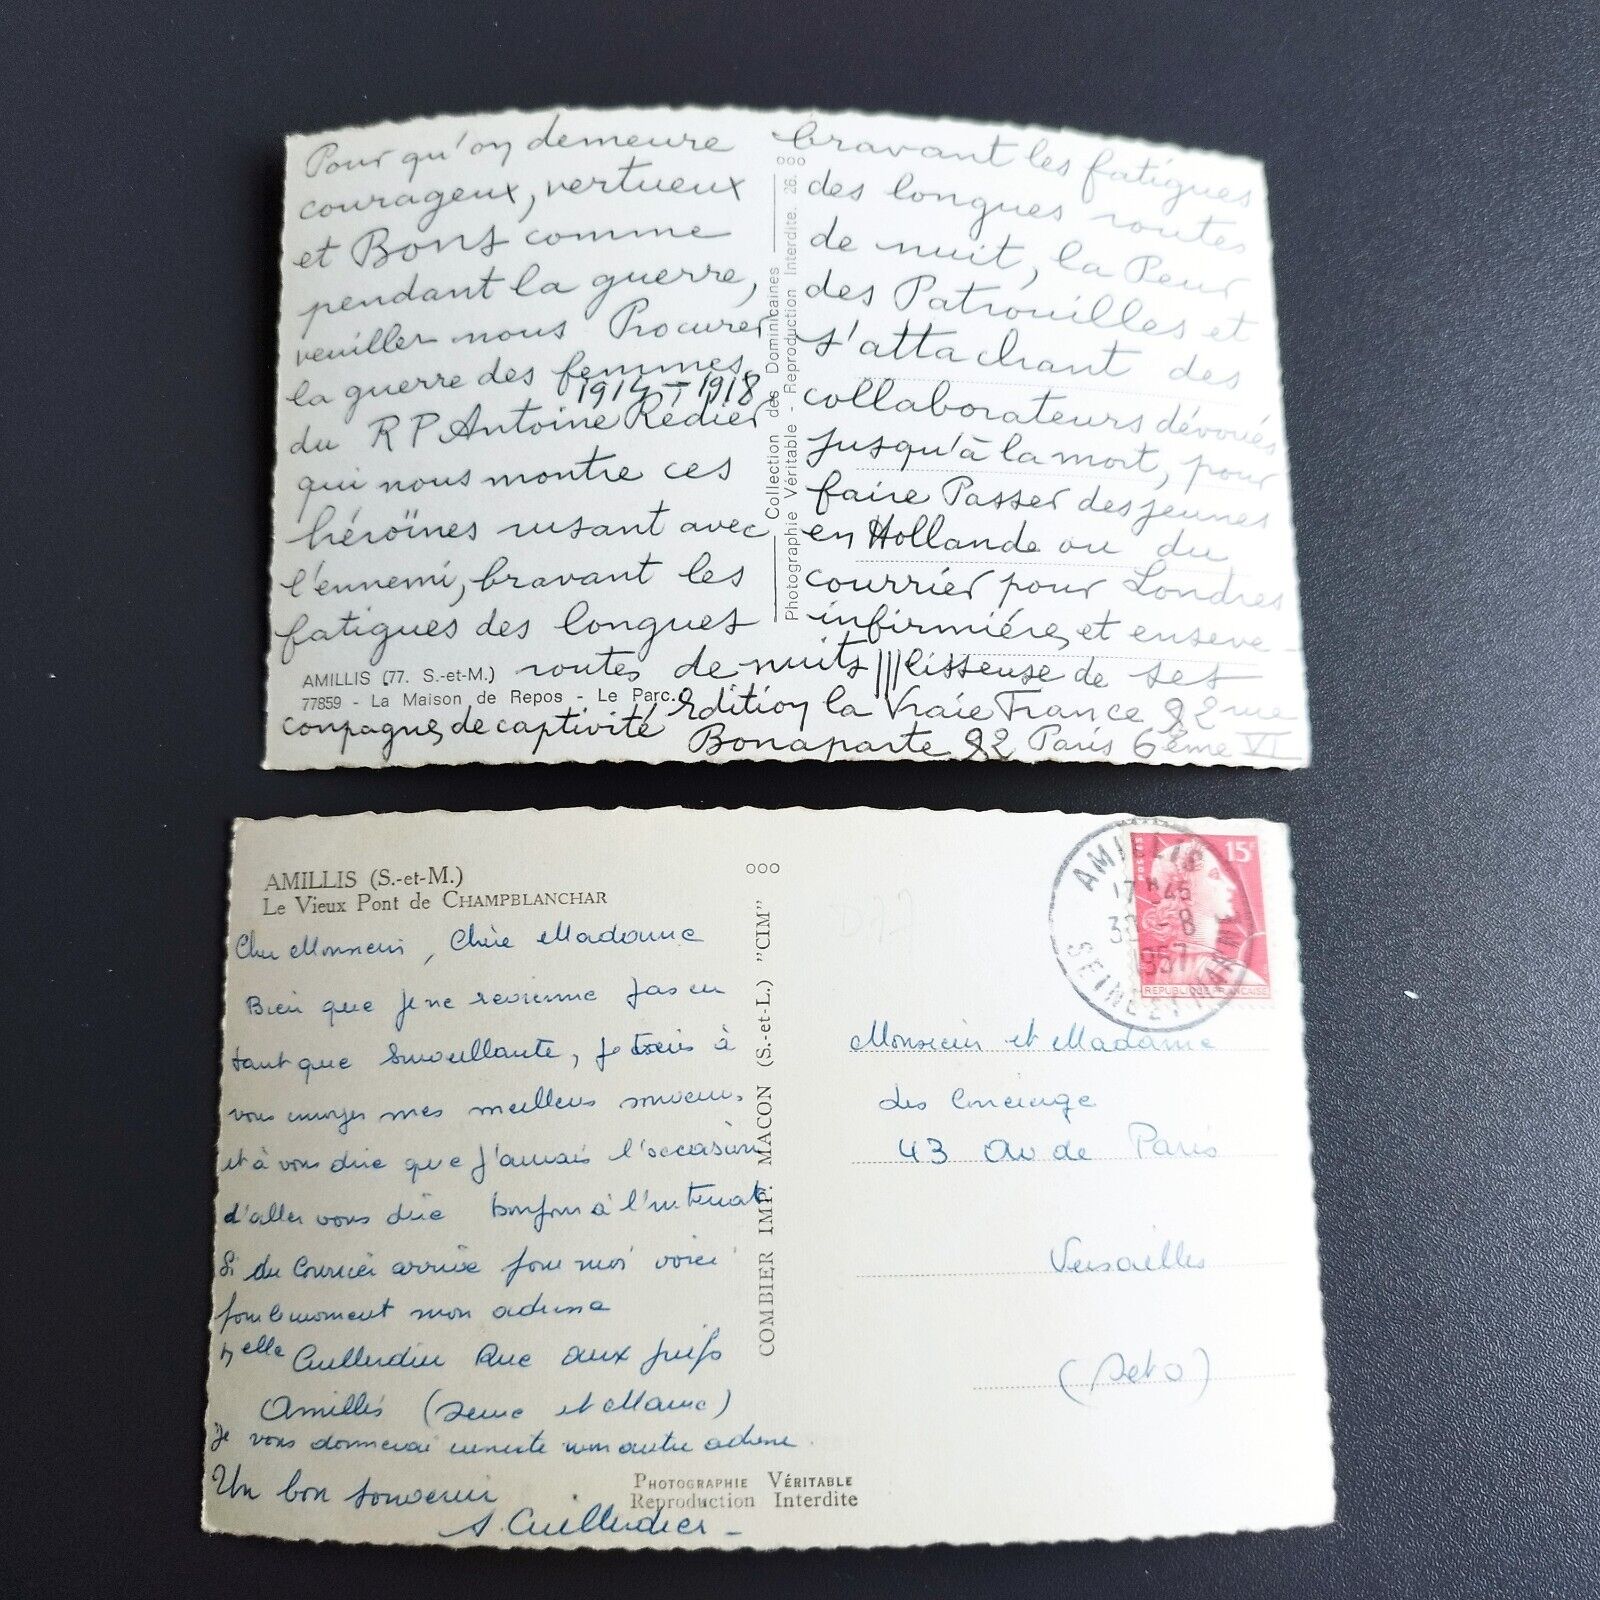 Pour qu'on demeure
courageux, vertueux
et Bons comme
pendant la guerre,
veuillez nous Procurer
la guerre des femmes
1914-1918
du R P Antoine Redier
qui nous montre ces
héroïnes rusant avec
l'ennemi, bravant les
fatigues des longues
routes de nuits ///
AMILLIS (77. S.-et-M.)
77859 - La Maison de Repos - Le Parc.
Collection des Dominicaines
Photographie Véritable - Reproduction Interdite. 26.
ooo
bravant les fatigues
des longues routes
de nuit, la Peur
des Patrouilles et
s'attachant des
collaborateurs dévoués
jusqu'à la mort, pour
faire Passer des jeunes
en Hollande ou du
courrier pour Londres
infirmière, et enseve-
lisseuse de ses
compagnes de captivité, Edition la Vraie France 92 rue
Bonaparte 92 Paris 6ème VI
AMILLIS (S.-et-M.)
Le Vieux Pont de CHAMPBLANCHAR
Cher Monsieur, Chère Madame
Bien que je ne revienne pas en
tant que Surveillante, je tiens à
vous envoyer mes meilleurs souvenirs
et à vous dire que j'aurais l'occasion
d'aller vous dire bonjour à l'internat
Si du Courrier arrive pour moi voici
pour le moment mon adresse
Melle Cuilludier Rue aux Juifs
Amillis (Seine et Marne)
je vous donnerai ensuite mon autre adresse.
Un bon souvenir
S. Cuilludier -
PHOTOGRAPHIE VÉRITABLE
Reproduction Interdite
ooo
COMBIER IMP. MACON (S.-et-L.) "CIM"
D77
AMILLIS
17H45
30-8
1957
SEINE ET MARNE
POSTES
15F
REPUBLIQUE FRANCAISE
Monsieur et Madame
les Concierge
43 Av de Paris
Versailles
(S et O)